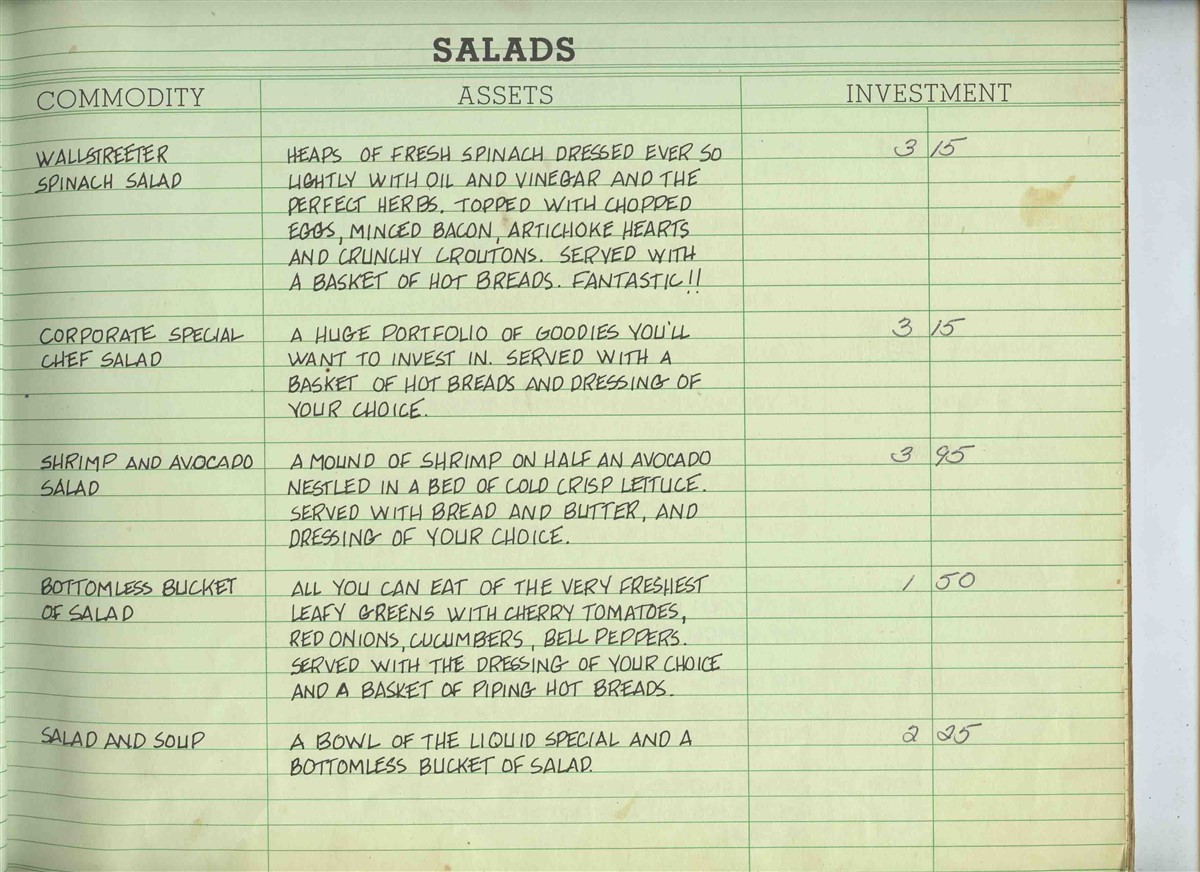 SALADS
COMMODITY ASSETS INVESTMENT
WALLSTREETER HEAPS OF FRESH SPINACH DRESSED EVER SO 3 15
SPINACH SALAD LIGHTLY WITH OIL AND VINEGAR AND THE
PERFECT HERBS. TOPPED WITH CHOPPED
EGGS, MINCED BACON, ARTICHOKE HEARTS
AND CRUNCHY CROUTONS. SERVED WITH
A BASKET OF HOT BREADS. FANTASTIC!!
CORPORATE SPECIAL A HUGE PORTFOLIO OF GOODIES YOU'LL 3 15
CHEF SALAD WANT TO INVEST IN. SERVED WITH A
BASKET OF HOT BREADS AND DRESSING OF
YOUR CHOICE.
SHRIMP AND AVOCADO A MOUND OF SHRIMP ON HALF AN AVOCADO 3 95
SALAD NESTLED IN A BED OF COLD CRISP LETTUCE.
SERVED WITH BREAD AND BUTTER, AND
DRESSING OF YOUR CHOICE.
BOTTOMLESS BUCKET ALL YOU CAN EAT OF THE VERY FRESHEST 1 50
OF SALAD LEAFY GREENS WITH CHERRY TOMATOES,
RED ONIONS, CUCUMBERS, BELL PEPPERS.
SERVED WITH THE DRESSING OF YOUR CHOICE
AND A BASKET OF PIPING HOT BREADS.
SALAD AND SOUP A BOWL OF THE LIQUID SPECIAL AND A 2 25
BOTTOMLESS BUCKET OF SALAD.